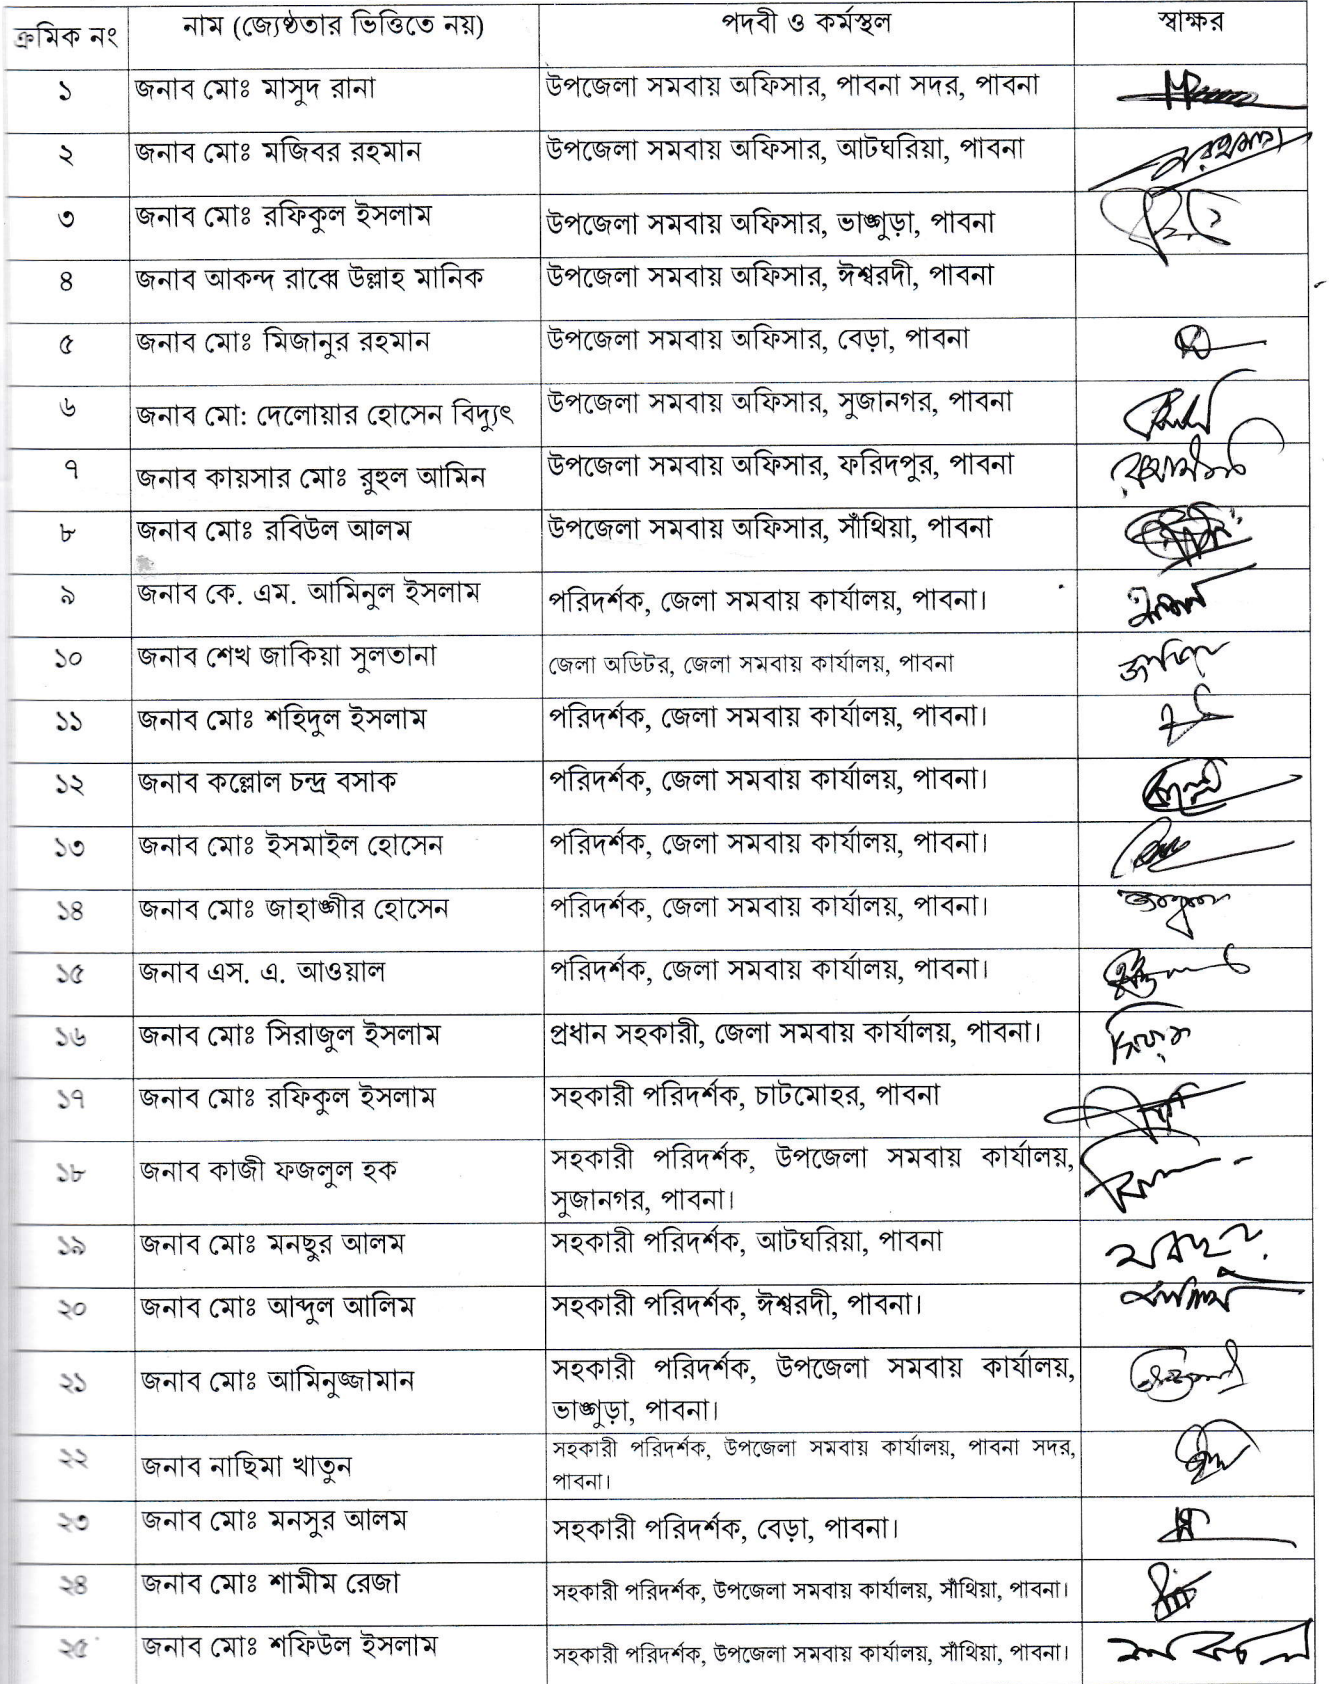 ক্রমিক নং | নাম (জ্যেষ্ঠতার ভিত্তিতে নয়) | পদবী ও কর্মস্থল | স্বাক্ষর
১ | জনাব মোঃ মাসুদ রানা | উপজেলা সমবায় অফিসার, পাবনা সদর, পাবনা
২ | জনাব মোঃ মজিবর রহমান | উপজেলা সমবায় অফিসার, আটঘরিয়া, পাবনা
৩ | জনাব মোঃ রফিকুল ইসলাম | উপজেলা সমবায় অফিসার, ভাঙ্গুড়া, পাবনা
৪ | জনাব আকন্দ রাব্বে উল্লাহ মানিক | উপজেলা সমবায় অফিসার, ঈশ্বরদী, পাবনা
৫ | জনাব মোঃ মিজানুর রহমান | উপজেলা সমবায় অফিসার, বেড়া, পাবনা
৬ | জনাব মো: দেলোয়ার হোসেন বিদ্যুৎ | উপজেলা সমবায় অফিসার, সুজানগর, পাবনা
৭ | জনাব কায়সার মোঃ রুহুল আমিন | উপজেলা সমবায় অফিসার, ফরিদপুর, পাবনা
৮ | জনাব মোঃ রবিউল আলম | উপজেলা সমবায় অফিসার, সাঁথিয়া, পাবনা
৯ | জনাব কে. এম. আমিনুল ইসলাম | পরিদর্শক, জেলা সমবায় কার্যালয়, পাবনা।
১০ | জনাব শেখ জাকিয়া সুলতানা | জেলা অডিটর, জেলা সমবায় কার্যালয়, পাবনা
১১ | জনাব মোঃ শহিদুল ইসলাম | পরিদর্শক, জেলা সমবায় কার্যালয়, পাবনা।
১২ | জনাব কল্লোল চন্দ্র বসাক | পরিদর্শক, জেলা সমবায় কার্যালয়, পাবনা।
১৩ | জনাব মোঃ ইসমাইল হোসেন | পরিদর্শক, জেলা সমবায় কার্যালয়, পাবনা।
১৪ | জনাব মোঃ জাহাঙ্গীর হোসেন | পরিদর্শক, জেলা সমবায় কার্যালয়, পাবনা।
১৫ | জনাব এস. এ. আওয়াল | পরিদর্শক, জেলা সমবায় কার্যালয়, পাবনা।
১৬ | জনাব মোঃ সিরাজুল ইসলাম | প্রধান সহকারী, জেলা সমবায় কার্যালয়, পাবনা।
১৭ | জনাব মোঃ রফিকুল ইসলাম | সহকারী পরিদর্শক, চাটমোহর, পাবনা
১৮ | জনাব কাজী ফজলুল হক | সহকারী পরিদর্শক, উপজেলা সমবায় কার্যালয়,
সুজানগর, পাবনা।
১৯ | জনাব মোঃ মনছুর আলম | সহকারী পরিদর্শক, আটঘরিয়া, পাবনা
২০ | জনাব মোঃ আব্দুল আলিম | সহকারী পরিদর্শক, ঈশ্বরদী, পাবনা।
২১ | জনাব মোঃ আমিনুজ্জামান | সহকারী পরিদর্শক, উপজেলা সমবায় কার্যালয়,
ভাঙ্গুড়া, পাবনা।
২২ | জনাব নাছিমা খাতুন | সহকারী পরিদর্শক, উপজেলা সমবায় কার্যালয়, পাবনা সদর,
পাবনা।
২৩ | জনাব মোঃ মনসুর আলম | সহকারী পরিদর্শক, বেড়া, পাবনা।
২৪ | জনাব মোঃ শামীম রেজা | সহকারী পরিদর্শক, উপজেলা সমবায় কার্যালয়, সাঁথিয়া, পাবনা।
২৫ | জনাব মোঃ শফিউল ইসলাম | সহকারী পরিদর্শক, উপজেলা সমবায় কার্যালয়, সাঁথিয়া, পাবনা।